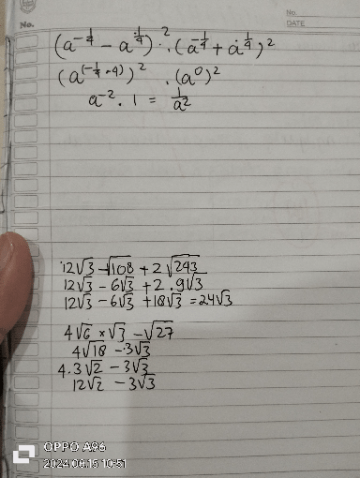 No.
No
DATE
(a^{-1/4} - a^{1/4})^2 · (a^{-1/4} + a^{1/4})^2
(a^{(-1/4 · 4)})^2 · (a^0)^2
a^{-2} · 1 = 1/a^2
12√3 - √108 + 2√243
12√3 - 6√3 + 2 . 9√3
12√3 - 6√3 + 18√3 = 24√3
4√6 × √3 - √27
4√18 - 3√3
4.3√2 - 3√3
12√2 - 3√3
OPPO A96
2024.06.15 10:51